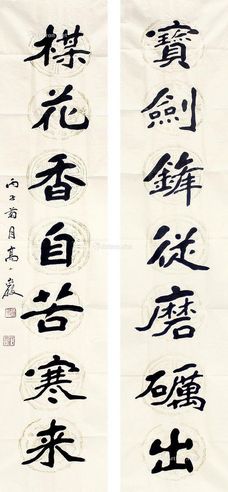 寶劍鋒從磨礪出
楳花香自苦寒来
丙子菊月高一巖